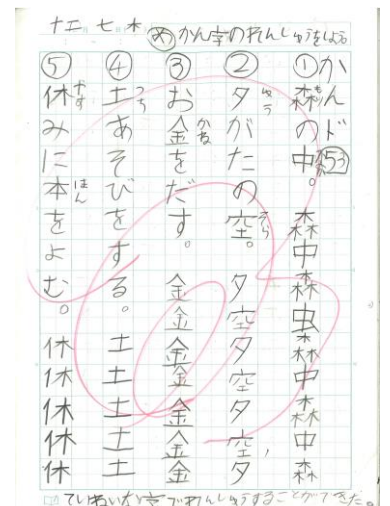 十二、七、木
め かん字のれんしゅうをしよう
かんド53
①森の中。森中森虫森中森中森
②夕がたの空。夕空夕空夕空夕
③お金をだす。金金金金金金
④土あそびをする。土土土土土
⑤休みに本をよむ。休休休休休
ていねいな字でれんしゅうすることができた。